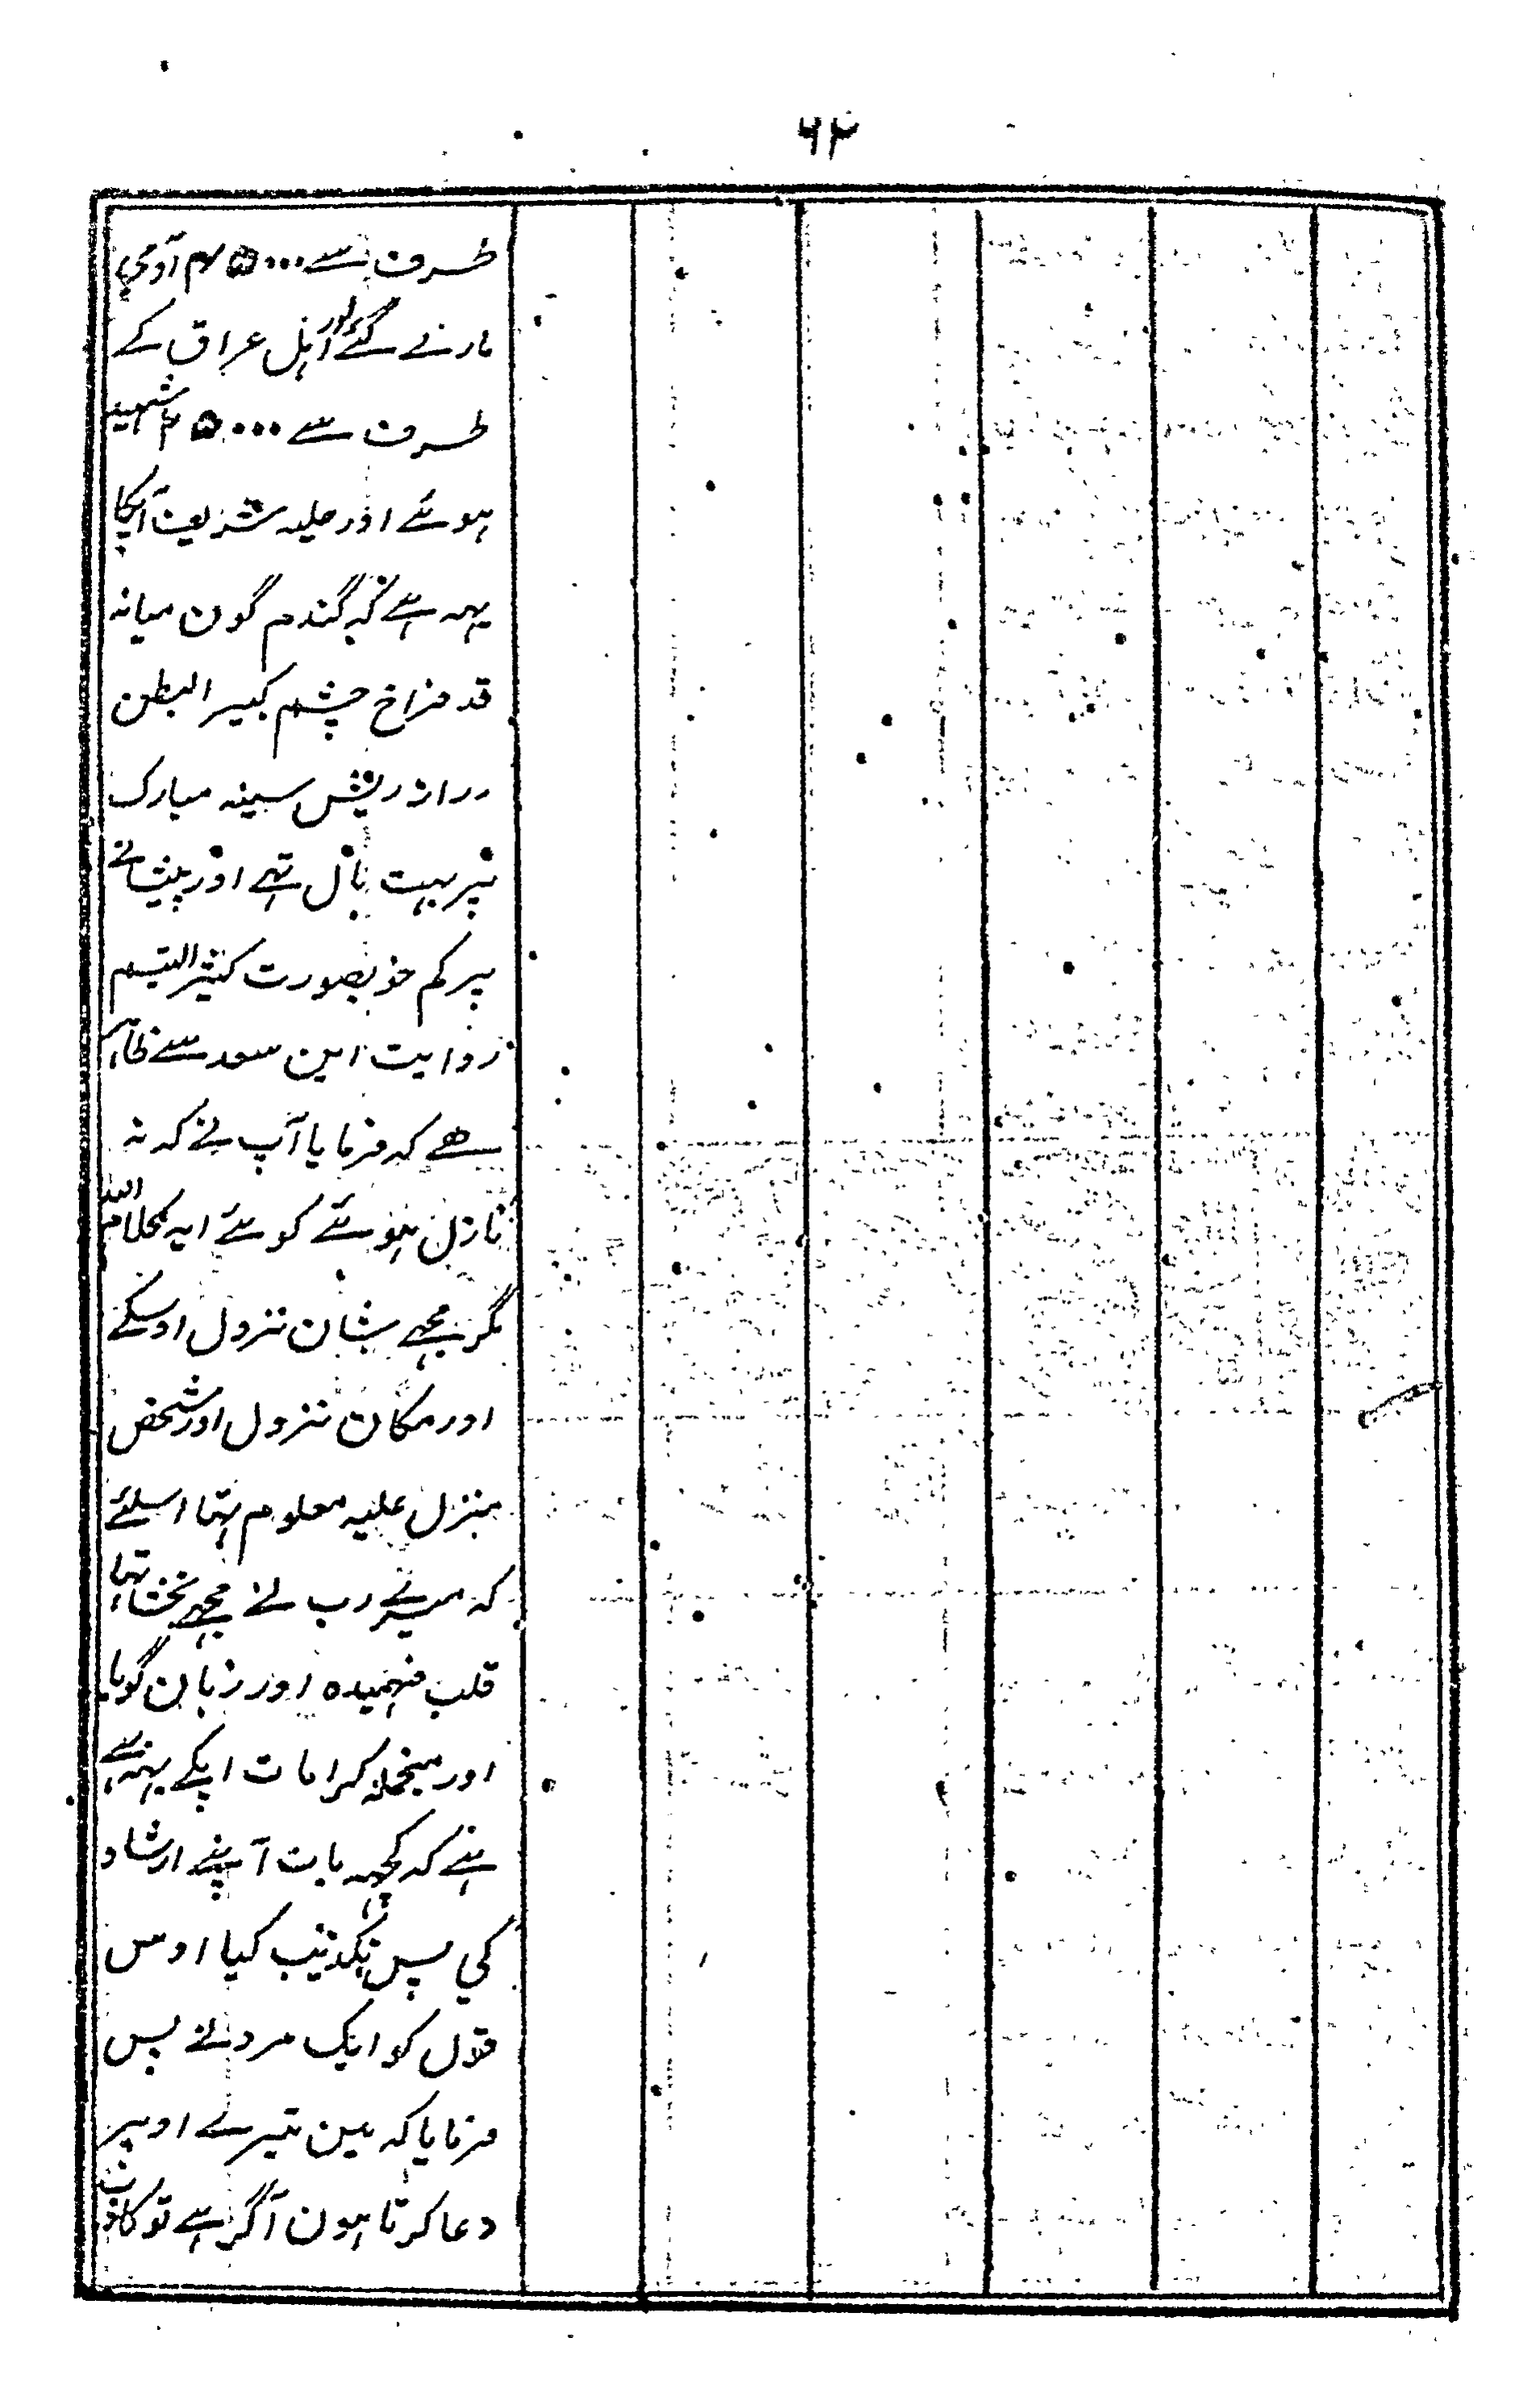 ۶۲
طرف سے ۴۵۰۰۰ آدمی
مارے گئے اور اہل عراق کے
طرف سے ۲۵۰۰۰ شہید
ہوئے اور حلیہ شریف آپکا
یہہ ہے کہ گندم گون میانہ
قد فراخ چشم کبیر البطن
دراز ریش سینہ مبارک
پر بہت بال تہے اور پیشانے
پر کم خوبصورت کثیر التبسم
روایت ابن سعد سے ظاہر
ہے کہ فرمایا آپ نے کہ نہ
نازل ہوئے کوئے ایہ کلام اللہ
مگر مجہے شان نزول اوسکے
اور مکان نزول اور شخص
منزل علیہ معلوم تہا اسلئے
کہ میرے رب نے مجہے بخشا تہا
قلب فہمیدہ اور زبان گویا
اور منجملہ کرامات اپکے یہہ ہے
ہے کہ کچہہ بات آپنے ارشاد
کی پس تکذیب کیا اوس
قول کو ایک مرد نے پس
فرمایا کہ مین تیرے اوپر
دعا کرتا ہون اگر ہے تو کاذب